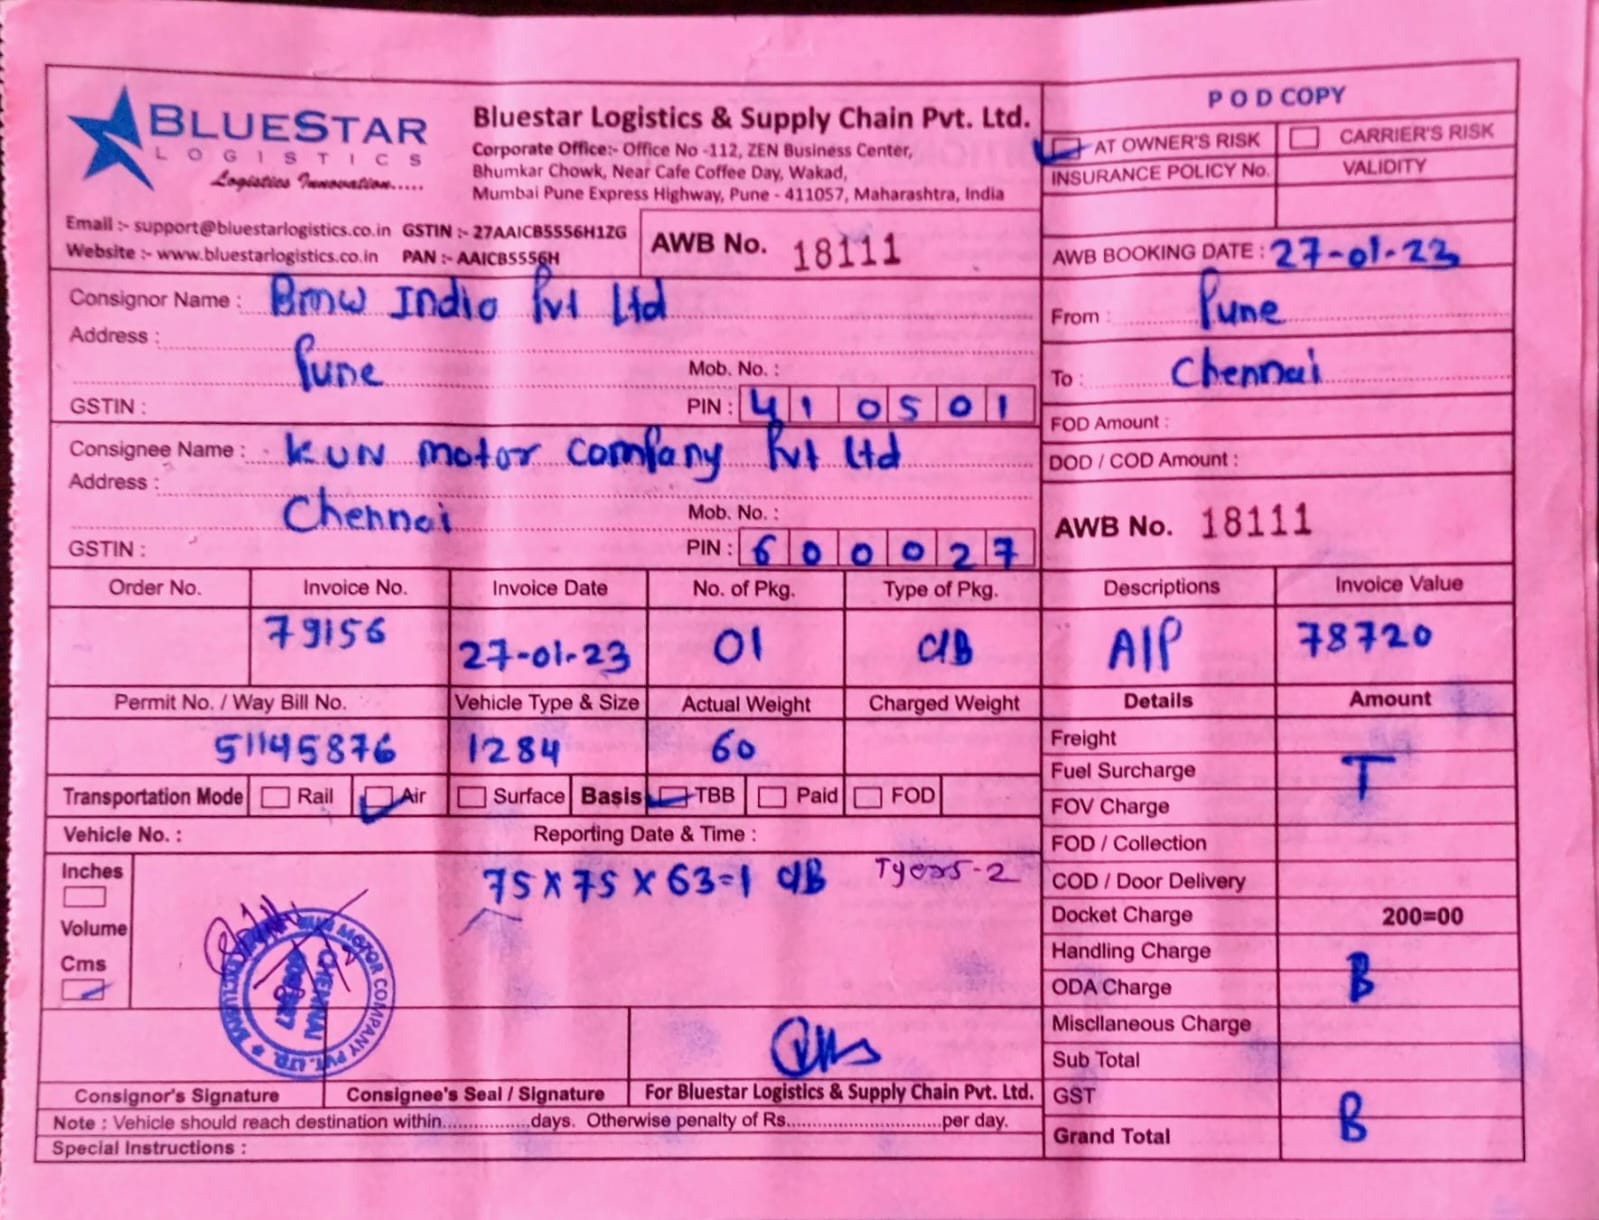 BLUESTAR
LOGISTICS
Logistics Innovation.....
Bluestar Logistics & Supply Chain Pvt. Ltd.
Corporate Office:- Office No -112, ZEN Business Center,
Bhumkar Chowk, Near Cafe Coffee Day, Wakad,
Mumbai Pune Express Highway, Pune - 411057, Maharashtra, India
Email :- support@bluestarlogistics.co.in GSTIN :- 27AAICB5556H1ZG
Website :- www.bluestarlogistics.co.in PAN :- AAICB5556H
AWB No. 18111
POD COPY
AT OWNER'S RISK CARRIER'S RISK
INSURANCE POLICY No. VALIDITY
AWB BOOKING DATE : 27-01-23
Consignor Name : Bmw India Pvt Ltd
Address :
Pune Mob. No. :
GSTIN : PIN : 410501
From : Pune
To : Chennai
FOD Amount :
DOD / COD Amount :
Consignee Name : KUN motor company Pvt Ltd
Address :
Chennai Mob. No. :
GSTIN : PIN : 600027
AWB No. 18111
Order No. Invoice No. Invoice Date No. of Pkg. Type of Pkg. Descriptions Invoice Value
79156 27-01-23 01 C/B A/P 78720
Permit No. / Way Bill No. Vehicle Type & Size Actual Weight Charged Weight Details Amount
51145876 1284 60
Transportation Mode Rail Air Surface Basis TBB Paid FOD
Vehicle No. : Reporting Date & Time :
Inches
Volume
Cms
75 X 75 X 63=1 C/B
MOTOR COMPANY PVT. LTD.
CHENNAI
Freight
Fuel Surcharge T
FOV Charge
FOD / Collection
COD / Door Delivery
Docket Charge 200=00
Handling Charge
ODA Charge B
Miscllaneous Charge
Sub Total
GST
Grand Total B
Consignor's Signature Consignee's Seal / Signature For Bluestar Logistics & Supply Chain Pvt. Ltd.
Note : Vehicle should reach destination within.................days. Otherwise penalty of Rs..............................per day.
Special Instructions :